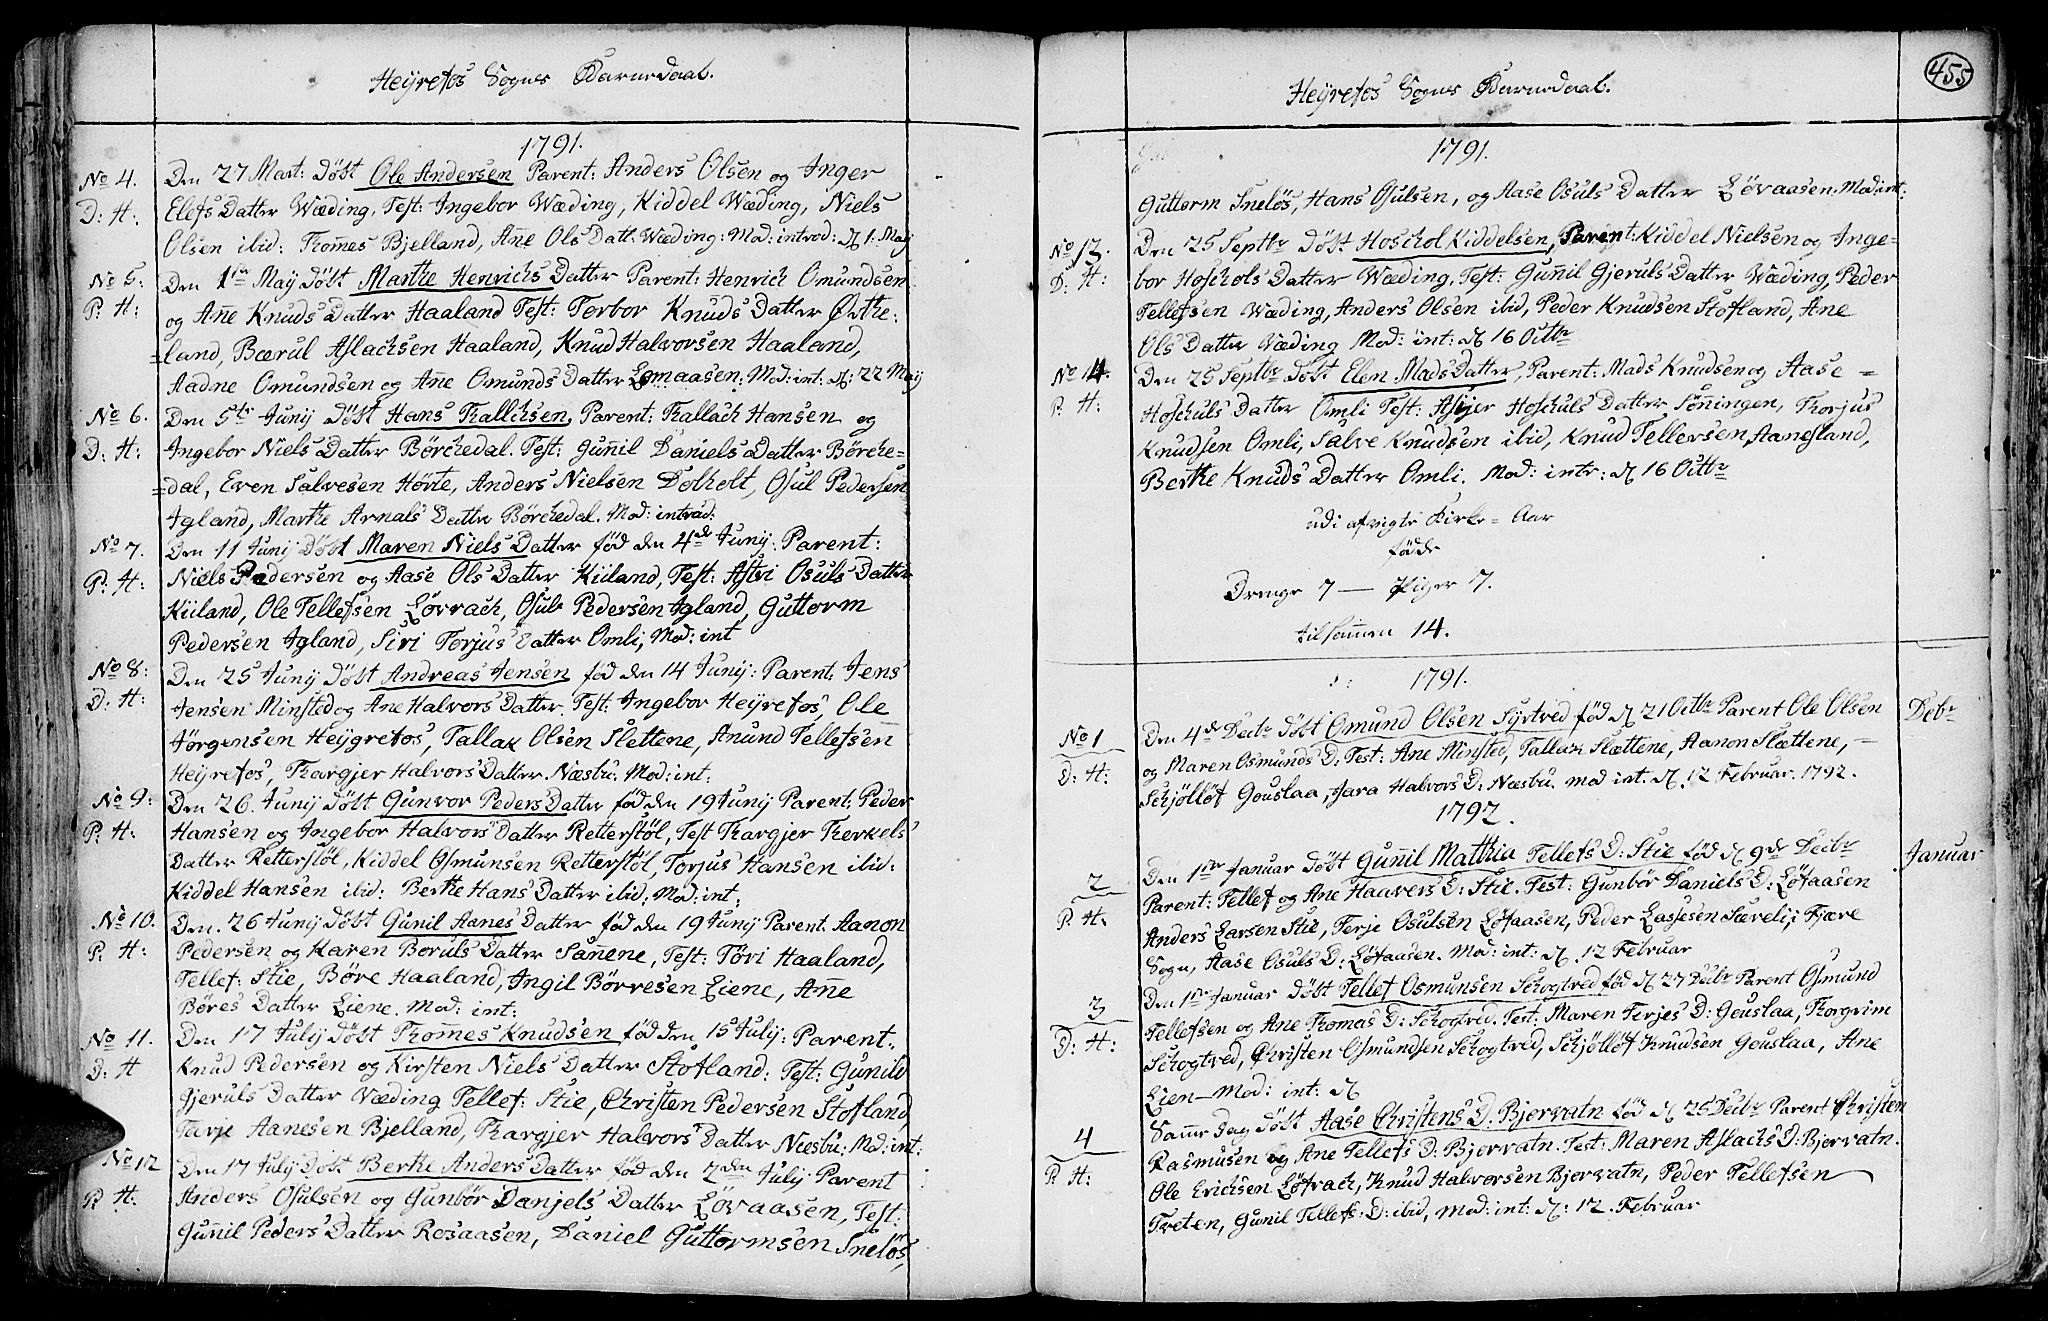 Heÿrefos Sognes Barnedaab.
1791.
No 4. Den 27 Mart: Döbt Ole Andersen Parent: Anders Olsen og Inger
D: H: Elefs Datter Væding, Test: Ingebor Væding, Kiddel Væding, Niels
Olsen ibid: Thomes Bjelland, Añe Ols Datt: Væding: Mod: introd: d 1: Maÿ
No 5: Den 1ste Maÿ döbt Marthe Henrichs Datter Parent: Henrich Omundsen
P: H: og Añe Knuds Datter Haaland Test: Torbor Knuds Datter Örthe:
=land, Bærul Aslachsen Haaland, Knud Halvorsen Haaland,
Aadne Omundsen og Añe Omunds Datter Lömaasen: Mod: int: d: 22 Maÿ
No 6. Den 5te Junÿ döbt Hans Thallchsen, Parent: Thallach Hansen og
D: H: Ingebor Niels Datter Börchedal. Test: Guñil Daniels Datter Börche=
=dal, Even Salvesen Hörte, Anders Nielsen Dolholt, Osul Pedersen
Igland, Marthe Arnals Datter Börchedal. Mod: introd:
No 7. Den 11 Junÿ Döbt Maren Niels Datter föd den 4de Junÿ: Parent:
P: H: Niels Pedersen og Aase Ols Datter Kiiland, Test: Astri Osuls Datter
Kiiland, Ole Tellefsen Lövrach, Osul Pedersen Igland, Guttorm
Pedersen Igland, Siri Torjus Datter Omli, Mod: int
No 8: Den 25 Junÿ Döbt Andreas Jensen föd den 14 Junÿ: Parent: Jens
D: H: Jensen Minsted og Ane Halvors Datter. Test: Ingebor Heÿrefos, Ole
Jörgensen Heÿgrefos, Tallak Olsen Slettene, Anund Tellefsen
Heÿrefos, Thargjer Halvors Datter Næsbu: Mod: int:
No 9: Den 26. Junÿ döbt Gunvor Peders Datter föd den 19 Junÿ Parent: Peder
P: H: Hansen og Ingebor Halvors Datter Retterstöl, Test Thargjer Therkels
Datter Retterstöl, Kiddel Osmunsen Retterstöl, Torjus Hansen ibid:
Kiddel Hansen ibid: Berthe Hans Datter ibid, Mod: int:
No 10. Den 26 Junÿ döbt Gunil Aanes Datter föd den 19 Junÿ Parent: Aanon
P: H: Pedersen og Karen Boruls Datter Sañene, Test: Töri Haaland,
Tellef: Stie, Böre Haaland, Ingil Börresen Liene, Ane
Böres Datter Liene. Mod: int:
No 11. Den 17 Julÿ döbt Thomes Knudsen föd den 15 Julÿ: Parent:
D: H Knud Pedersen og Kirsten Niels Datter Stofland: Test: Gunild
Gjeruls Datter Væding Tellef: Stie, Christen Pedersen Stofland,
Terje Aanesen Bjelland, Thargjer Halvors Datter Næsbu: Mod: int:
No 12 Den 17 Julÿ Döbt Berthe Anders Datter föd den 2den Julÿ: Parent
P: H: Anders Osulsen og Gunbör Danjels Datter Lövaasen, Test:
Guñil Peders Datter Rosaasen, Daniel Guttormsen Snelös
455
Heÿrefos Sognes Barnedaab.
1791.
Guttorm Snelös, Hans Osulsen, og Aase Osuls Datter Lövaasen. Mod: int:
No 13. Den 25 Septbr döbt Hoschol Kiddelsen, Parent: Kiddel Nielsen og Inge=
D: H: bor Hoschols Datter Væding, Test: Guñil Gjeruls Datter Væding, Peder
Tellefsen Væding, Anders Olsen ibid, Peder Knudsen Stofland, Ane
Ols Datter Væding Mod: int: d 16 Octbr
No 14. Den 25 Septbr döbt Elen Mads Datter, Parent: Mads Knudsen og Aase
P: H: Hoschuls Datter Omli Test: Asjer Hoschuls Datter Söñingen, Thorjus
Knudsen Omli, Salve Knudsen ibid, Knud Tellersen Aanesland,
Berthe Knuds Datter Omli. Mod: intr: d 16 Octbr
udi afvigte Kirke=Aar
födde
Drenge 7 — Piger 7.
tilsamen 14.
1791.
No 1 Den 4de Decbr döbt Omund Olsen Syrtved föd d 21 Octbr Parent Ole Olsen Debr
D: H: og Maren Osmunds D: Test: Ane Minsted, Tallak Slættene, Aanon Slættene,
Schjöllöf Gouslaa, Jara Halvors D: Næsbu. mod int: d. 12 Februar. 1792.
1792.
2 Den 1ste Januar döbt Guñil Matthia Tellefs D: Stie föd d 9de Decbr Januar
P: H: Parent: Tellef og Ane Haavers D: Stie. Test: Gunbör Daniels D: Löfaasen
Anders Larsen Stie, Terje Osulsen Löfaasen, Peder Lassesen Særeli, Fjære
Sogn, Aase Osuls D: Löfaasen. Mod: int: d. 12 Februar
3 Den 1ste Januar döbt Tellef Osmunsen Schogtved föd d 27 Decbr Parent Osmund
D: H: Tellefsen og Ane Thomas D: Schogtved. Test: Maren Terjes D: Gouslaa, Thorgrim
Schogtved, Christen Osmundsen Schogtved, Schjöllöf Knudsen Gouslaa, Ane
Lien — Mod: int: d
4 Same Dag döbt Aase Christens D: Bjorvatn föd d 25 Decbr Parent Christen
P: H: Rasmusen og Ane Tellefs D: Bjorvatn. Test: Maren Aslachs D: Bjorvatn.
Ole Erichsen Löfrach, Knud Halvorsen Bjorvatn, Peder Tellefsen
Treten, Gunil Tellefs: D: ibid, Mod: int: d: 12. Februar